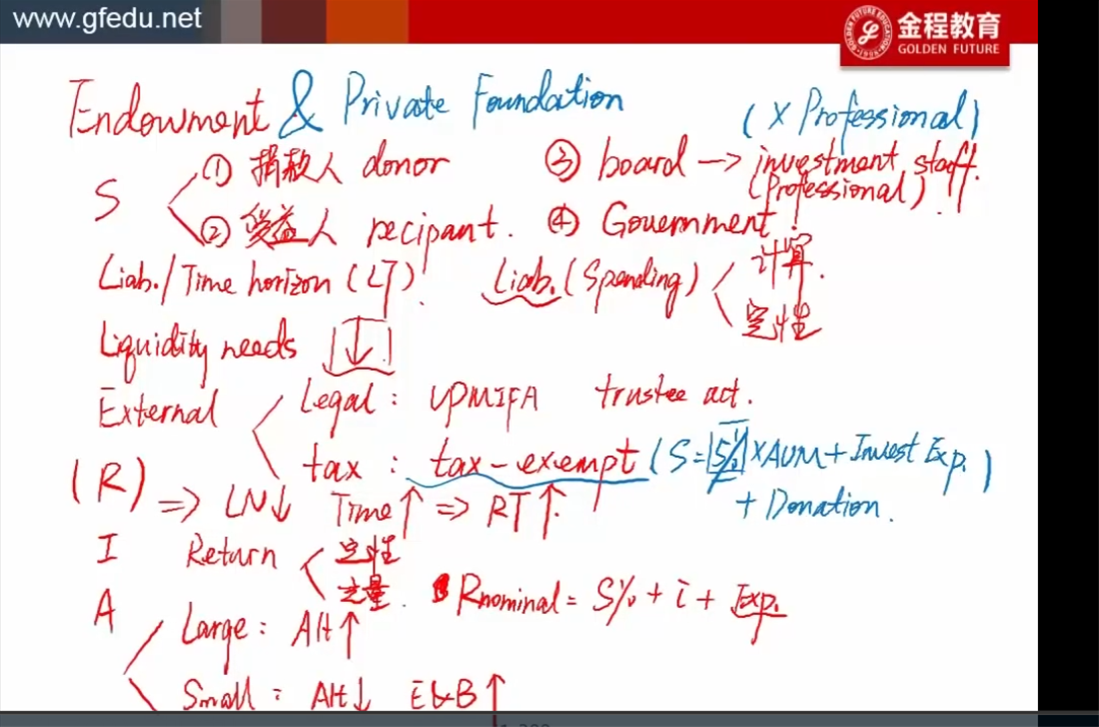 www.gfedu.net
金程教育
GOLDEN FUTURE
Endowment & Private Foundation
(X Professional)
S ① 捐款人 donor ③ board → investment staff. (Professional)
② 受益人 recipant. ④ Government.
Liab./Time horizon (LT). Liab. (Spending) 计算.
定性
Liquidity needs ↓
External Legal: UPMIFA trustee act.
tax: tax-exempt (S=5% X AUM + Invest Exp.)
+ Donation.
(R) => LN↓ Time↑ => RT↑.
I Return 定性
定量. Rnominal = S% + i + Exp.
A Large: Alt↑
Small: Alt↓ E&B↑